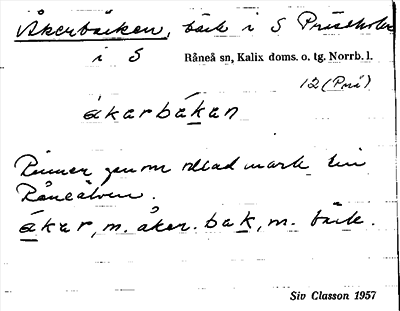 Åkerbäcken, bäck i S Prästholm
i S Råneå sn, Kalix doms. o. tg. Norrb. l.
12 (Prä)
ákarbákan
Rinner genom odlad mark till
Råneälven.
ákar, m. åker. bak, m. bäck.
Siv Classon 1957